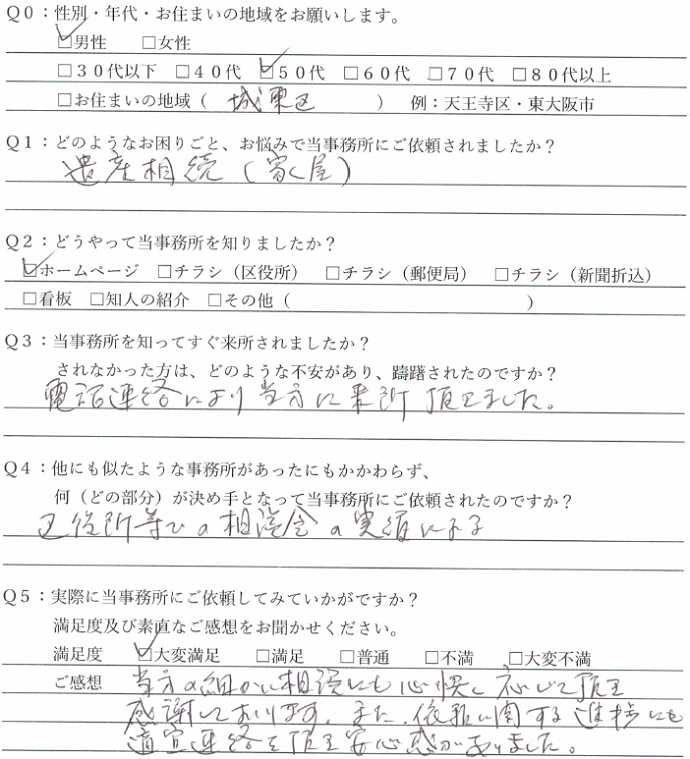 Q0：性別・年代・お住まいの地域をお願いします。
☑男性 □女性
□30代以下 □40代 ☑50代 □60代 □70代 □80代以上
□お住まいの地域（ 城東区 ） 例：天王寺区・東大阪市
Q1：どのようなお困りごと、お悩みで当事務所にご依頼されましたか？
遺産相続（家屋）
Q2：どうやって当事務所を知りましたか？
☑ホームページ □チラシ（区役所） □チラシ（郵便局） □チラシ（新聞折込）
□看板 □知人の紹介 □その他（ ）
Q3：当事務所を知ってすぐ来所されましたか？
されなかった方は、どのような不安があり、躊躇されたのですか？
電話連絡により当方に来所頂きました。
Q4：他にも似たような事務所があったにもかかわらず、
何（どの部分）が決め手となって当事務所にご依頼されたのですか？
区役所等での相談会の実績による
Q5：実際に当事務所にご依頼してみていかがですか？
満足度及び素直なご感想をお聞かせください。
満足度 ☑大変満足 □満足 □普通 □不満 □大変不満
ご感想 当方の細かい相談にも心快く応じて頂き
感謝しております。また、依頼に関する進捗にも
適宜連絡を頂き安心感がありました。